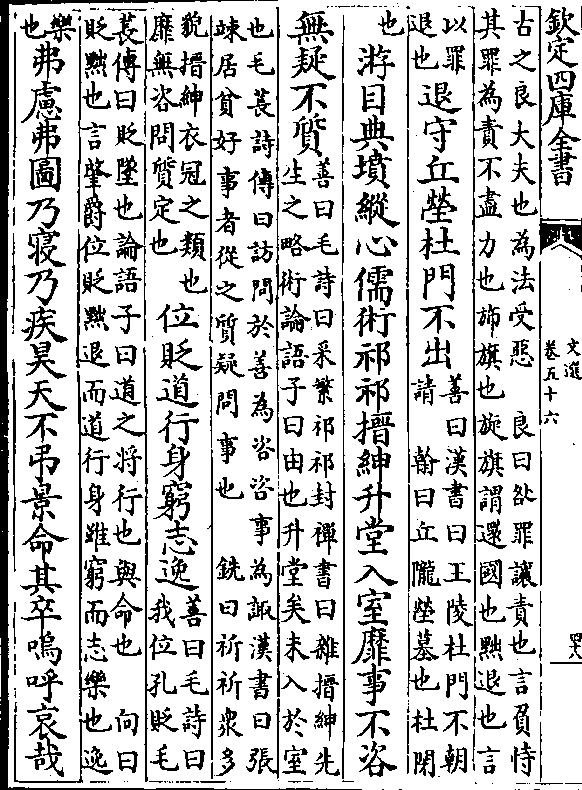 欽定四庫全書
文選
卷五十六
古之良大夫也為法受惡 良曰劾罪讓責也言負恃
其罪為責不盡力也斾旗也旋旗謂還國也黜退也言
以罪
退也
退守丘塋杜門不出
善曰漢書曰王陵杜門不朝
請 翰曰丘隴塋墓也杜閉
也
游目典墳縱心儒術祁祁搢紳升堂入室靡事不咨
無疑不質
善曰毛詩曰采蘩祁祁封禪書曰雜搢紳先
生之略術論語子曰由也升堂矣未入於室
也毛萇詩傳曰訪問於善為咨咨事為諏漢書曰張
竦居貧好事者從之質疑問事也 銑曰祈祈衆多
貌搢紳衣冠之類也
靡無咨問質定也
位貶道行身窮志逸
善曰毛詩曰
我位孔貶毛
萇傳曰貶墜也論語子曰道之將行也與命也 向曰
貶黜也言肇爵位貶黜退而道行身雖窮而志樂也逸
樂
也
弗慮弗圖乃寢乃疾昊天不弔景命其卒嗚呼哀哉